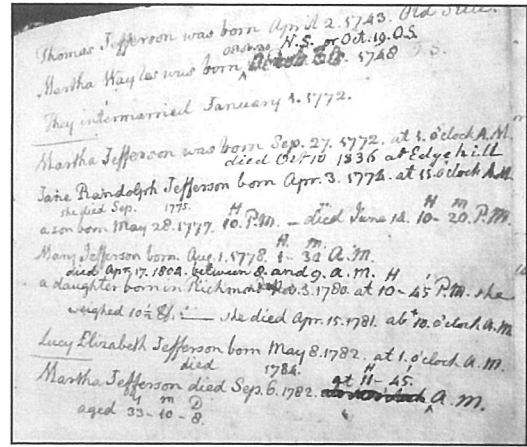 Thomas Jefferson was born April 2. 1743. Old Stile.
Martha Wayles was born October 30 N.S. or Oct. 19. O.S. 1748 O.S.
They intermarried January 1. 1772.
Martha Jefferson was born Sep. 27. 1772. at 1. o'clock A.M.
died Oct 10 1836 at Edgehill
Jane Randolph Jefferson born Apr. 3. 1774. at 11. o'clock A.M.
she died Sep. 1775.
a son born May 28. 1777. H 10. P.M. — died June 14. H 10- m 20. P.M.
Mary Jefferson born. Aug. 1. 1778. H 1- m 30 A.M.
died Apr. 17. 1804. between 8. and 9. a.m.
a daughter born in Richmond 3. 1780. at H 10- 45' P.M. she
weighed 10½ lb. she died Apr. 15. 1781. at 10. o'clock A.M.
Lucy Elizabeth Jefferson born May 8. 1782. at 1. o'clock A.M.
died 1784.
Martha Jefferson died Sep. 6. 1782. at H 11- 45' A.M.
aged Y 33- m 10- D 8.